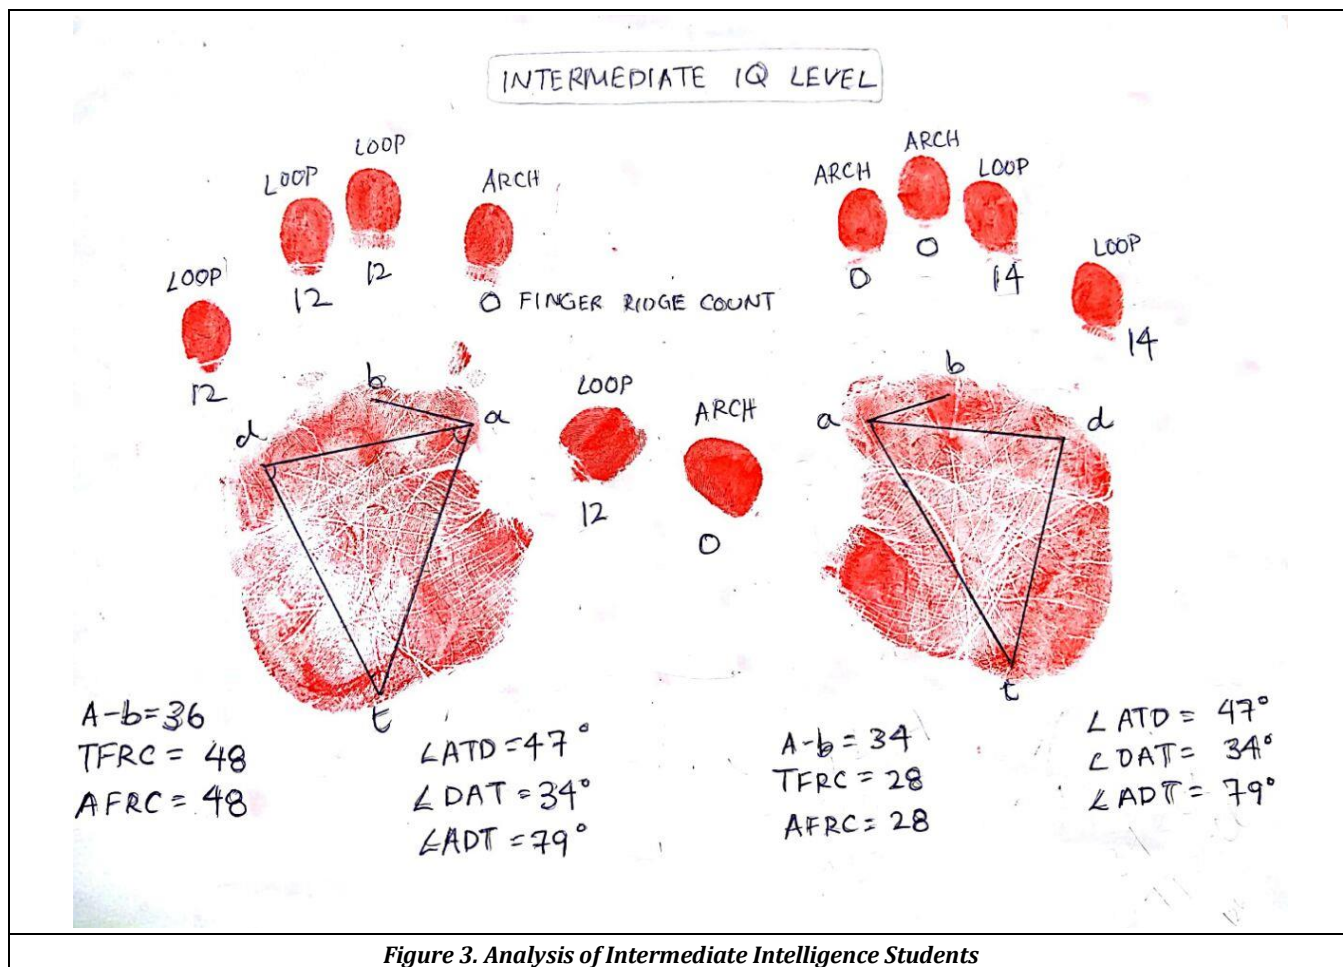 INTERMEDIATE IQ LEVEL
LOOP
LOOP
LOOP
ARCH
12
12
12
0 FINGER RIDGE COUNT
ARCH
ARCH
LOOP
LOOP
0
0
14
14
b
a
d
t
LOOP
12
ARCH
0
b
a
d
t
A-b=36
TFRC = 48
AFRC = 48
∠ATD = 47°
∠DAT = 34°
∠ADT = 79°
A-b = 34
TFRC = 28
AFRC = 28
∠ATD = 47°
∠DAT = 34°
∠ADT = 79°
Figure 3. Analysis of Intermediate Intelligence Students